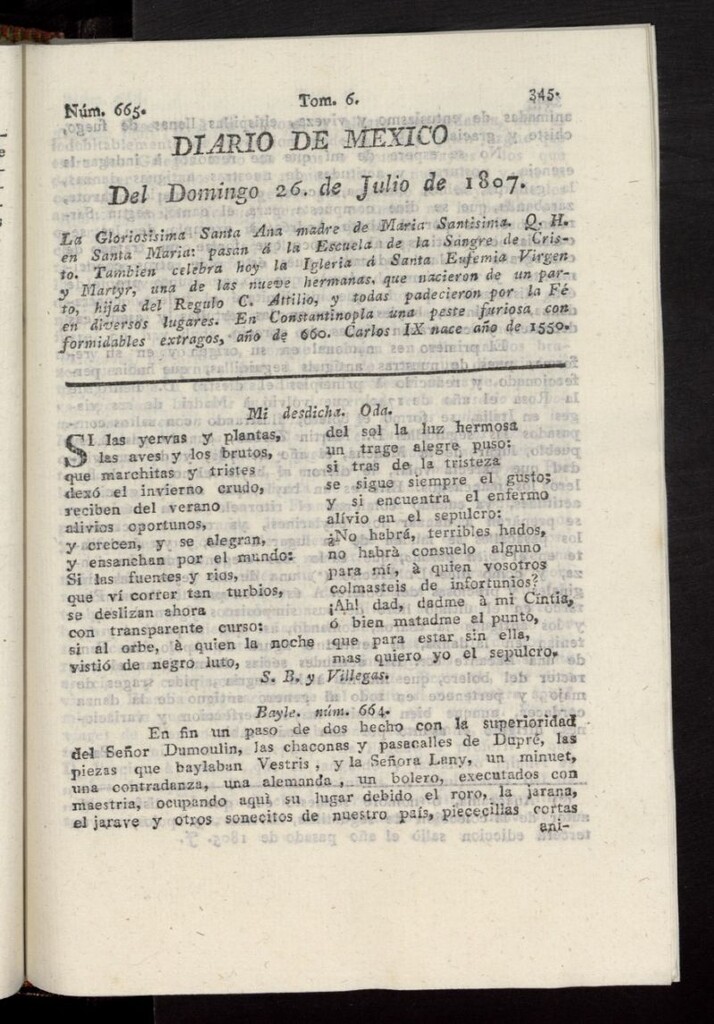 Núm. 665.
Tom. 6.
345.
DIARIO DE MEXICO
Del Domingo 26. de Julio de 1807.
La Gloriosisima Santa Ana madre de Maria Santisima. Q. H.
en Santa Maria: pasan á la Escuela de la Sangre de Cris-
to. Tambien celebra hoy la Igleria á Santa Eufemia Virgen
y Martyr, una de las nueve hermanas, que nacieron de un par-
to, hijas del Regulo C. Attilio, y todas padecieron por la Fé
en diversos lugares. En Constantinopla una peste furiosa con
formidables extragos, año de 660. Carlos IX nace año de 1550.
Mi desdicha. Oda.
SI las yervas y plantas,
las aves y los brutos,
que marchitas y tristes
dexó el invierno crudo,
reciben del verano
alivios oportunos,
y crecen, y se alegran,
y ensanchan por el mundo:
Si las fuentes y rios,
que ví correr tan turbios,
se deslizan ahora
con transparente curso:
si al orbe, à quien la noche
vistió de negro luto,
del sol la luz hermosa
un trage alegre puso:
si tras de la tristeza
se sigue siempre el gusto;
y si encuentra el enfermo
alívio en el sepulcro:
¿No habrá, terribles hados,
no habrà consuelo alguno
para mí, à quien vosotros
colmasteis de infortunios?
¡Ah! dad, dadme à mi Cíntia,
ó bien matadme al punto,
que para estar sin ella,
mas quiero yo el sepulcro.
S. B. y Villegas.
Bayle. núm. 664.
En fin un paso de dos hecho con la superioridad
del Señor Dumoulin, las chaconas y pasacalles de Dupré, las
piezas que baylaban Vestris, y la Señora Lany, un minuet,
una contradanza, una alemanda, un bolero, executados con
maestria, ocupando aqui su lugar debido el roro, la jarana,
el jarave y otros sonecitos de nuestro país, piececillas cortas
ani-